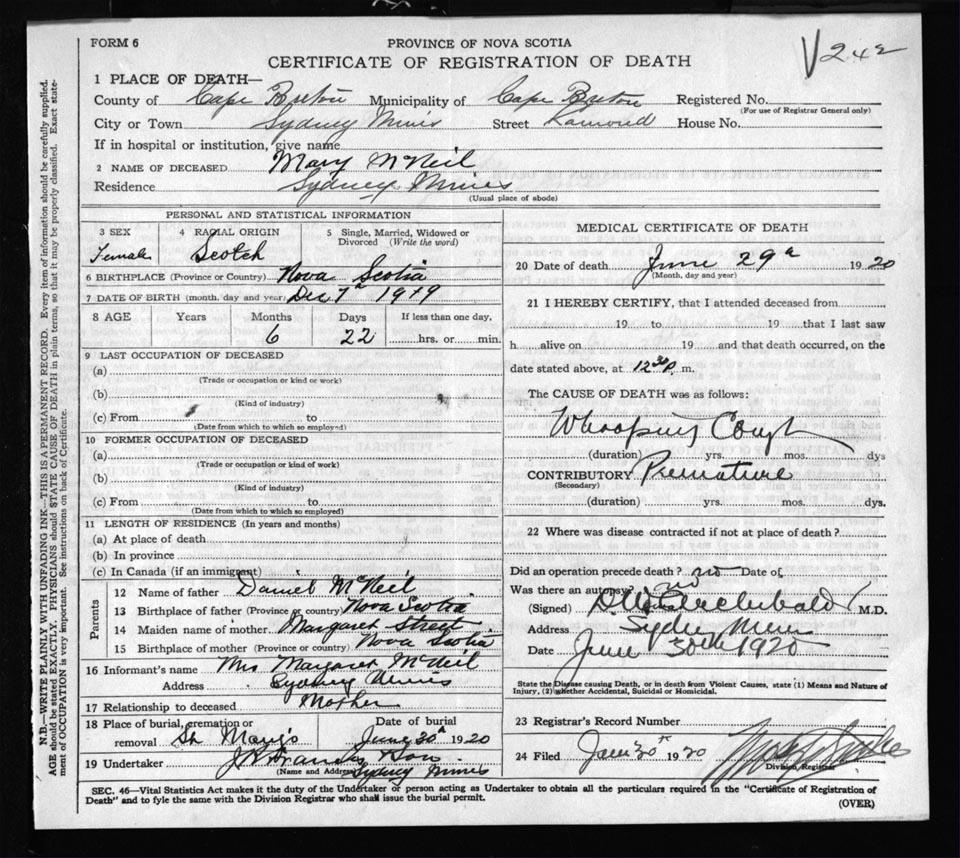 FORM 6
PROVINCE OF NOVA SCOTIA
CERTIFICATE OF REGISTRATION OF DEATH
V242
1 PLACE OF DEATH—
County of Cape Breton Municipality of Cape Breton Registered No.
(For use of Registrar General only)
City or Town Sydney Mines Street House No.
If in hospital or institution, give name
2 NAME OF DECEASED Mary McNeil
Residence Sydney Mines
(Usual place of abode)
PERSONAL AND STATISTICAL INFORMATION
3 SEX 4 RACIAL ORIGIN 5 Single, Married, Widowed or Divorced (Write the word)
Female Scotch
6 BIRTHPLACE (Province or Country) Nova Scotia
7 DATE OF BIRTH (month, day and year) Dec 7th 1919
8 AGE Years Months Days If less than one day,
6 22 hrs. or min.
9 LAST OCCUPATION OF DECEASED
(a)
(Trade or occupation or kind or work)
(b)
(Kind of industry)
(c) From to
(Date from which to which so employed)
10 FORMER OCCUPATION OF DECEASED
(a)
(Trade or occupation or kind of work)
(b)
(Kind of industry)
(c) From to
(Date from which to which so employed)
11 LENGTH OF RESIDENCE (In years and months)
(a) At place of death
(b) In province
(c) In Canada (if an immigrant)
Parents
12 Name of father Daniel McNeil
13 Birthplace of father (Province or country) Nova Scotia
14 Maiden name of mother Margaret Street
15 Birthplace of mother (Province or country) Nova Scotia
16 Informant's name Mrs Margaret McNeil
Address Sydney Mines
17 Relationship to deceased Mother
18 Place of burial, cremation or removal Date of burial
St Mary's June 30th 1920
19 Undertaker Son
(Name and Address) Sydney Mines
MEDICAL CERTIFICATE OF DEATH
20 Date of death June 29th 1920
(Month, day and year)
21 I HEREBY CERTIFY, that I attended deceased from
19 to 19 that I last saw
h alive on 19 and that death occurred, on the
date stated above, at 12 30 P. m.
The CAUSE OF DEATH was as follows:
Whooping Cough
(duration) yrs. mos. dys
CONTRIBUTORY Premature
(Secondary)
(duration) yrs. mos. dys.
22 Where was disease contracted if not at place of death?
Did an operation precede death? no Date of
Was there an autopsy? no
(Signed) Archibald M.D.
Address Sydney Mines
Date June 30th 1920
State the Disease causing Death, or in death from Violent Causes, state (1) Means and Nature of
Injury, (2) whether Accidental, Suicidal or Homicidal.
23 Registrar's Record Number
24 Filed June 30th 1920
Division Registrar
SEC. 46—Vital Statistics Act makes it the duty of the Undertaker or person acting as Undertaker to obtain all the particulars required in the "Certificate of Registration of
Death" and to fyle the same with the Division Registrar who shall issue the burial permit.
(OVER)
N.B.—WRITE PLAINLY WITH UNFADING INK—THIS IS A PERMANENT RECORD. Every item of information should be carefully supplied.
AGE should be stated EXACTLY. PHYSICIANS should STATE CAUSE OF DEATH in plain terms, so that it may be properly classified. Exact state-
ment of OCCUPATION is very important. See instructions on back of Certificate.